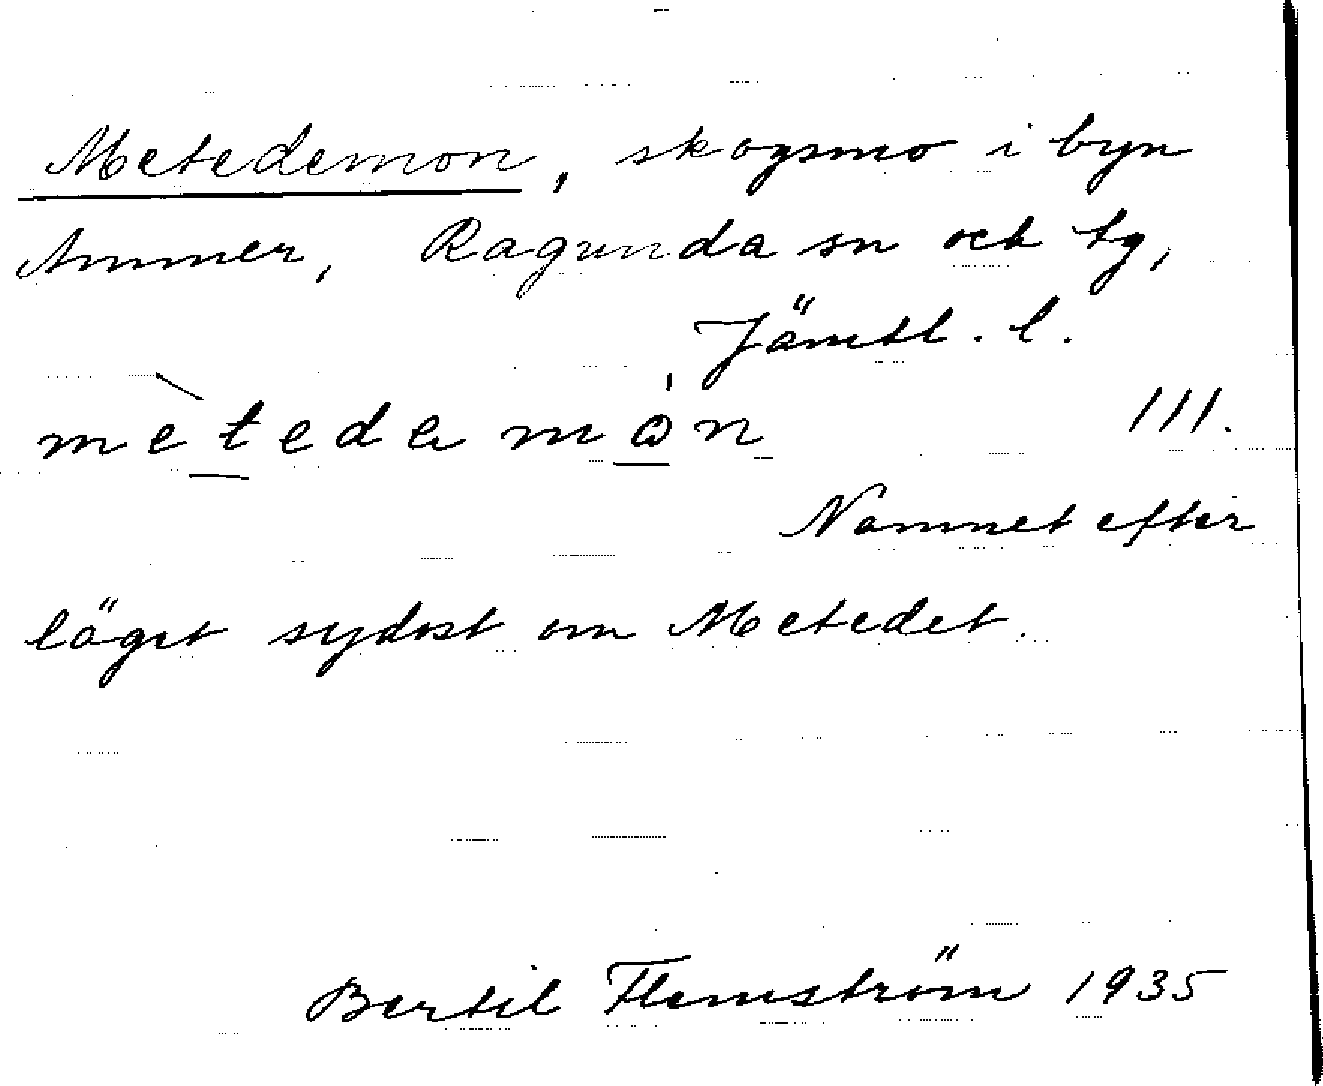 Metedemon, skogsmo i byn
Ammer, Ragunda sn och tg,
Jämtl. l.
mètedemón III.
Namnet efter
läget sydost om Metedet.
Bertil Flemström 1935